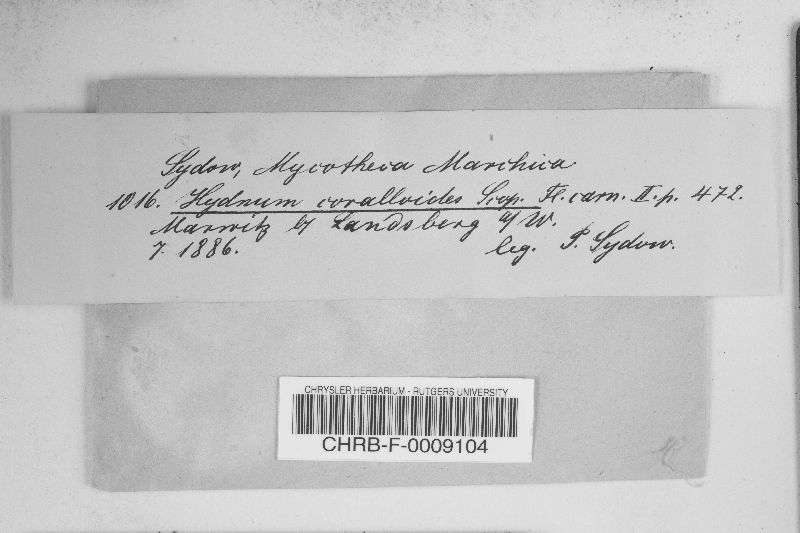 Sydow, Mycotheca Marchica
1016. Hydnum coralloides Scop. Fl. carn. II. p. 472.
Marwitz b/ Landsberg a/W.
7. 1886. leg. P. Sydow.
CHRYSLER HERBARIUM - RUTGERS UNIVERSITY
CHRB-F-0009104